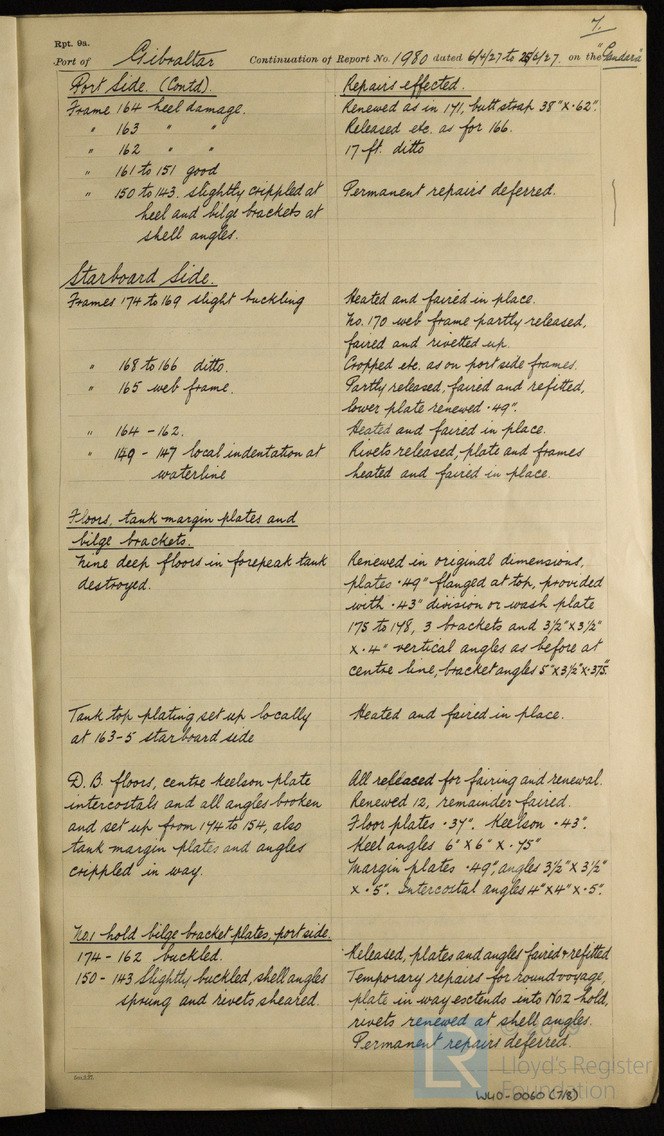 7.
Rpt. 9a.
Port of Gibraltar Continuation of Report No. 1980 dated 6/4/27 to 25/6/27 on the
Port Side. (Contd).
Repairs effected.
Frame 164 heel damage.
Renewed as in 171, buttstrap 38" x .62".
" 163 " "
Released etc. as for 166.
" 162 " "
17 ft. ditto
" 161 to 151 good
" 150 to 143. slightly crippled at
Permanent repairs deferred.
heel and bilge brackets at
shell angles.
Starboard Side.
Frames 174 to 169 slight buckling
Heated and faired in place.
No. 170 web frame partly released,
faired and rivetted up.
" 168 to 166 ditto.
Cropped etc. as on port side frames.
" 165 web frame.
Partly released, faired and refitted,
lower plate renewed .49".
" 164 - 162.
Heated and faired in place.
" 149 - 147 local indentation at
Rivets released, plate and frames
waterline
heated and faired in place.
Floors, tank margin plates and
bilge brackets.
Nine deep floors in forepeak tank
Renewed in original dimensions,
destroyed.
plates .49" flanged at top, provided
with .43" division or wash plate
175 to 178, 3 brackets and 3½" x 3½"
x .4" vertical angles as before at
centre line, bracket angles 5" x 3½" x .375".
Tank top plating set up locally
Heated and faired in place.
at 163-5 starboard side
D. B. floors, centre keelson plate
All released for fairing and renewal.
intercostals and all angles broken
Renewed 12, remainder faired.
and set up from 174 to 154, also
Floor plates .37". Keelson .43".
tank margin plates and angles
Keel angles 6" x 6" x .75"
crippled in way.
Margin plates .49", angles 3½" x 3½"
x .5". Intercostal angles 4" x 4" x .5".
No. 1 hold bilge bracket plates, port side.
174 - 162 buckled.
Released, plates and angles faired & refitted
150 - 143 Slightly buckled, shell angles
Temporary repairs for round voyage,
sprung and rivets sheared.
plate in way extends into No 2 hold,
rivets renewed at shell angles.
Permanent repairs deferred.
LR
Lloyd's Register
Foundation
W40-0060 (7/8)